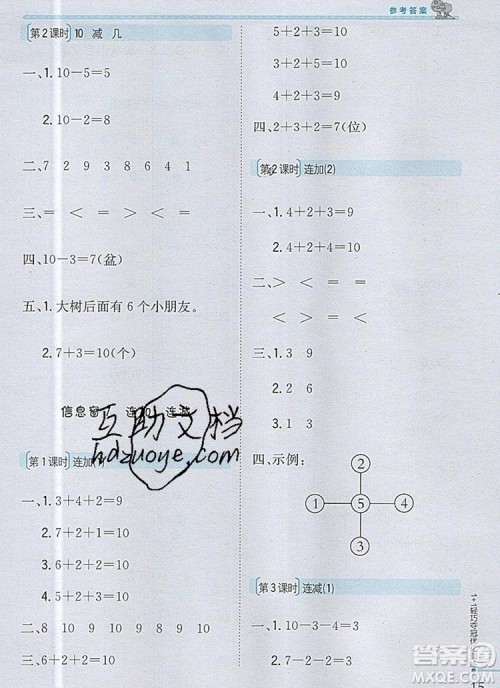 参考答案
第2课时 10 减 几
一、1. 10－5＝5
2. 10－2＝8
二、7 2 9 3 8 6 4 1
三、＝ ＜ ＝ ＞ ＜ ＝
四、10－3＝7(盆)
五、1. 大树后面有 6 个小朋友。
2. 7＋3＝10(个)
信息窗 连加 连减
第1课时 连加(1)
一、1. 3＋4＋2＝9
2. 7＋2＋1＝10
3. 6＋2＋2＝10
4. 2＋5＋3＝10
二、8 9 10 9 9 10
三、6＋2＋2＝10
5＋2＋3＝10
3＋3＋4＝10
4＋2＋3＝9
四、2＋3＋2＝7(位)
第2课时 连加(2)
一、1. 4＋2＋3＝9
2. 4＋3＋3＝10
二、＞ ＜ ＝ ＝
＜ ＞ ＜ ＝
三、1. 3 9
2. 1 3
四、示例：
2
1 5 4
3
第3课时 连减(1)
一、1. 10－3－4＝3
2. 10－2－4＝4
互助文档
hdzuoye.com
答案圈
MXQE.COM
15